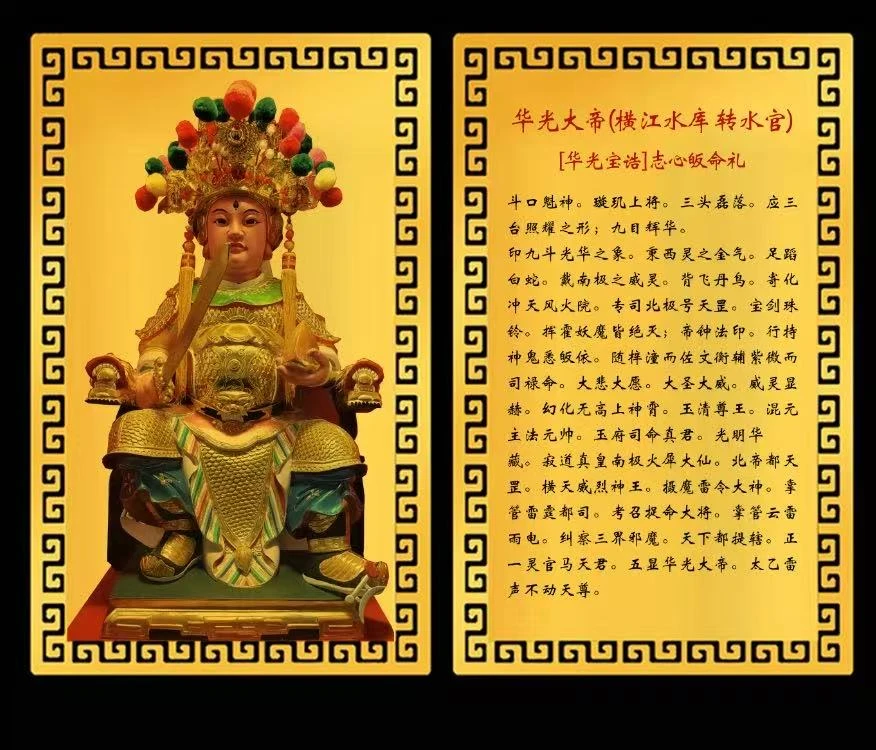 华光大帝(横江水库转水官)
[华光宝诰]志心皈命礼
斗口魁神。璇玑上将。三头磊落。应三
台照耀之形；九目辉华。
印九斗光华之象。秉西灵之金气。足蹈
白蛇。戴南极之威灵。背飞丹鸟。寄化
冲天风火院。专司北极号天罡。宝剑珠
铃。挥霍妖魔皆绝灭；帝钟法印。行持
神鬼悉皈依。随梓潼而佐文衡辅紫微而
司禄命。大悲大愿。大圣大威。威灵显
赫。幻化无高上神霄。玉清尊王。混元
主法元帅。玉府司命真君。光明华
藏。寂道真皇南极火犀大仙。北帝都天
罡。横天威烈神王。摄魔雷令大神。掌
管雷霆都司。考召捉命大将。掌管云雷
雨电。纠察三界邪魔。天下都提辖。正
一灵官马天君。五显华光大帝。太乙雷
声不动天尊。